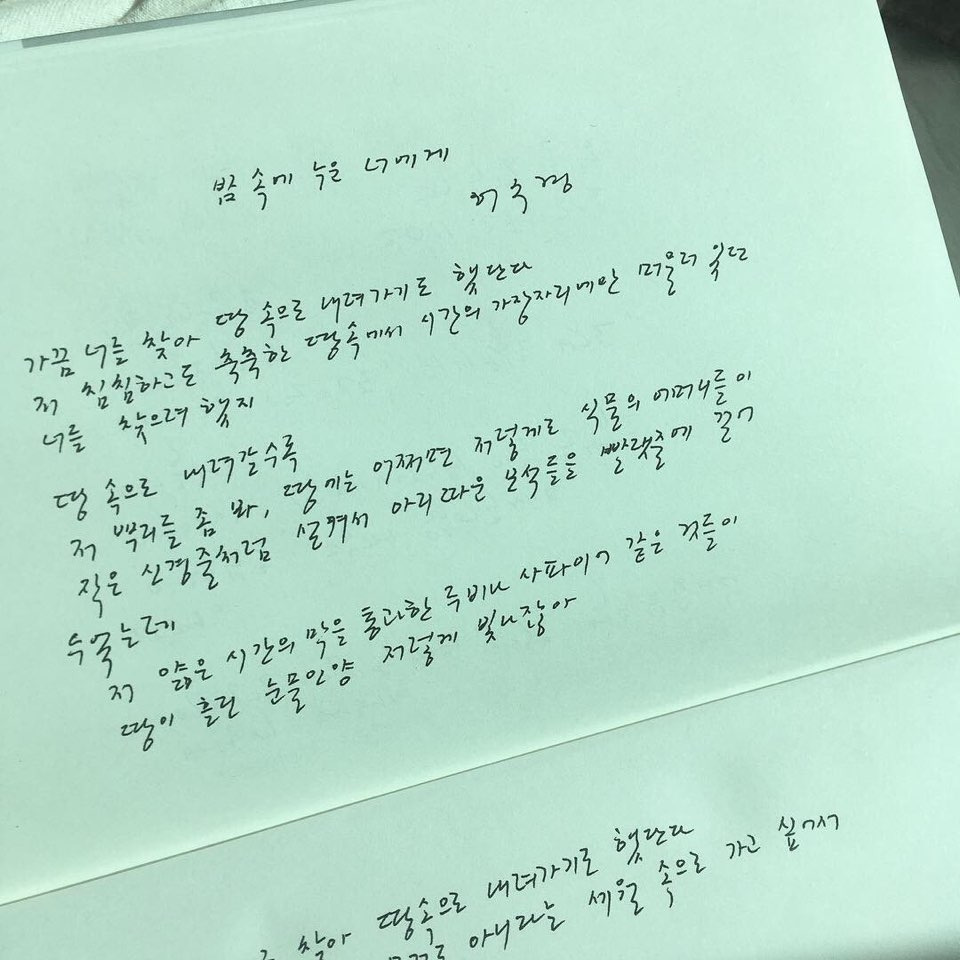 밤 속에 누운 너에게
허수경
가끔 너를 찾아 땅 속으로 내려가기도 했단다
저 침침하고도 축축한 땅속에서 시간의 가장자리에만 머물러 있던
너를 찾으려 했지
땅 속으로 내려갈수록
저 뿌리를 좀 봐, 땅에는 어쩌면 저렇게도 식물의 어머니들이
작은 신경줄처럼 설켜서 아리따운 보석들을 빨랫줄에 널어
두었는데
저 얇은 시간의 막을 통과한 루비나 사파이어 같은 것들이
땅이 흘린 눈물인양 저렇게 빛나잖아
찾아 땅속으로 내려가기로 했단다
아니라는 세월 속으로 가고 싶어서